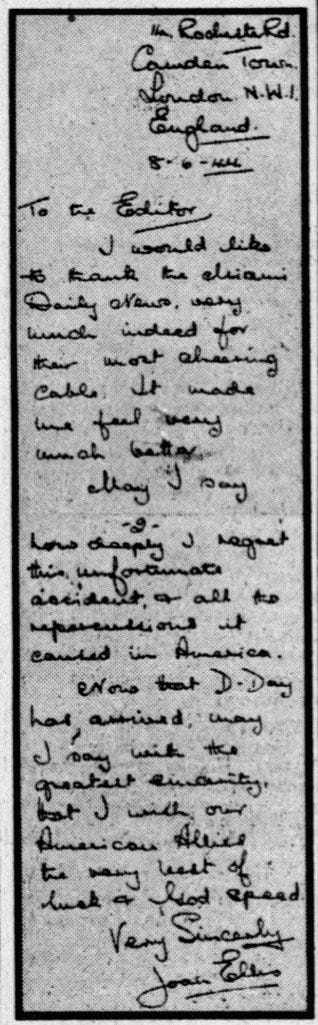 Rochester Rd.
Camden Town.
London N.W.1.
England.
8-6-44
To the Editor
I would like
to thank the Miami
Daily News, very
much indeed for
their most cheering
cable. It made
me feel very
much better.
May I say
-2-
how deeply I regret
this unfortunate
accident, & all the
repercussions it
caused in America.
Now that D-Day
has arrived, may
I say with the
greatest sincerity,
that I wish our
American Allies
the very best of
luck & God speed
Very Sincerely
Joan Ellis